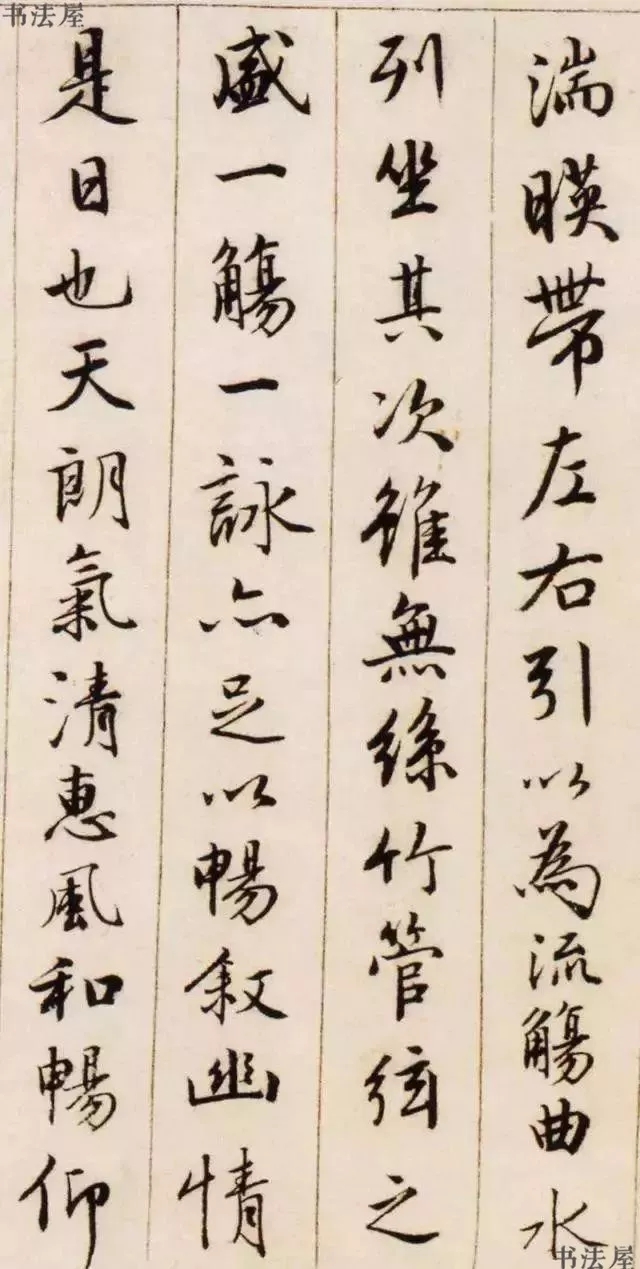 湍暎帶左右引以為流觴曲水
列坐其次雖無絲竹管弦之
盛一觴一詠亦足以暢敘幽情
是日也天朗氣清惠風和暢仰
书法屋
书法屋